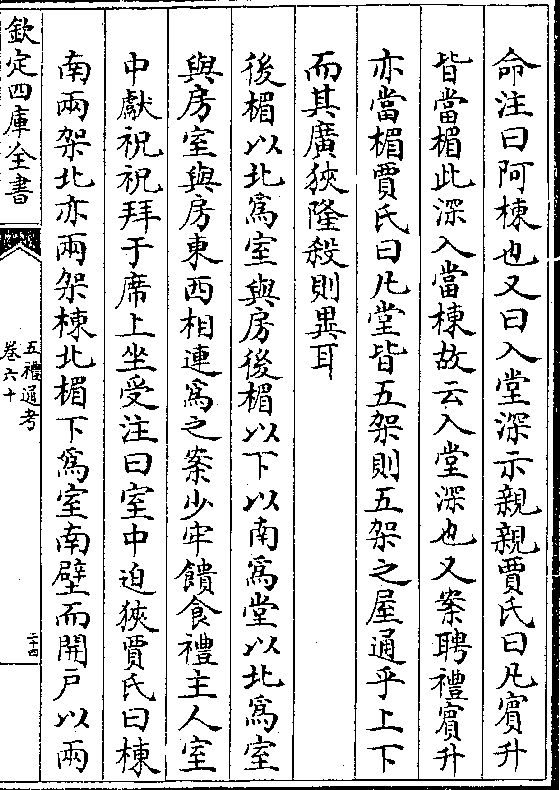 命注曰阿棟也又曰入堂深示親親賈氏曰凡賓升
皆當楣此深入當棟故云入堂深也又案聘禮賓升
亦當楣賈氏曰凡堂皆五架則五架之屋通乎上下
而其廣狹隆殺則異耳
後楣以北爲室與房後楣以下以南爲堂以北爲室
與房室與房東西相連爲之案少牢饋食禮主人室
中獻祝祝拜于席上坐受注曰室中迫狹賈氏曰棟
南兩架北亦兩架棟北楣下爲室南壁而開戶以兩
欽定四庫全書
五禮通考
卷六十
二十四